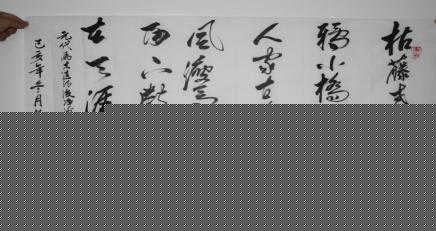 枯藤老
鴉小橋
人家古
風瘦馬
西下斷
在天涯
元代馬致遠
己亥年冬月